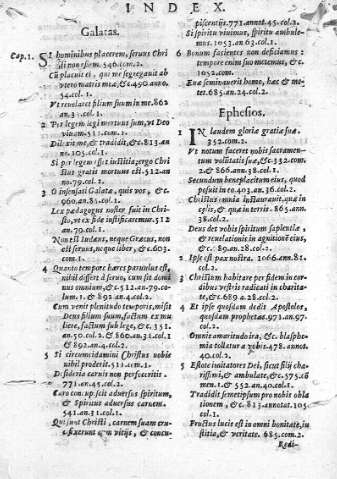 INDEX.
Galatas.
Cap. 1. Si hominibus placerem, seruus Chri
sti non essem. 546.com.2.
Cũ placuit ei, qui me segregauit ab
vtero matris meæ, &c.490.anno.
54.col.1.
Vt reuelaret filium suum in me.862
an.3 .col.1.
2 Per legem legi mortuus sum, vt Deo
viuam.511.com.1.
Dilexit me, & tradidit, &c.813.an
no.105.col.2.
Si per legem est iustitia, ergo Chri
stus gratis mortuus est.512.an
no.79.col.1.
3 O insensati Galatæ, quis vos, &c.
960.an.81.col.1.
Lex pædagogus noster fuit in Chri-
sto, vt ex fide iustificaremur.512
an.79.col.1.
Non est Iudæus, neque Græcus, non
est seruus, neque liber, &c.603.
com.1.
4 Quanto tempore hæres paruulus est,
nihil differt à seruo, cum sit domi
nus omnium, &c.512.an.79.co-
lum.1. & 892.an.4.col.2.
Cum venit plenitudo temporis, misit
Deus filium suum, factum ex mu
liere, factum sub lege, &c.351.
an.50.col.2. & 860.an.31.col.1
& 892.an.4.col.2.
5 Si circumcidamini Christus vobis
nihil proderit.511.com.1.
Desideria carnis non perficeritis.
771.an.45.col.2.
Caro concupiscit aduersus spiritum,
& Spiritus aduersus carnem.
541.an.31.col.1.
Qui sunt Christi, carnem suam cru
cifixerunt cum vitijs, & concu-
piscentijs.771.annot.45.col.2.
Si spiritu viuimus, spiritu ambule-
mus.1053.an.63.col.1.
6 Bonum facientes non deficiamus:
tempore enim suo metemus, &c.
1052.com.
Quæ seminauerit homo, hæc & me-
tet.685.an.24.col.2.
Ephesios.
1 IN laudem gloriæ gratiæ suæ.
352.com.2.
Vt notum faceret nobis sacramen-
tum voluntatis suæ, &c.352.com.
2. & 866.an.38.col.1.
Secundum beneplacitum eius, quod
posuit in eo.403.an.36.col.2.
Christus omnia instaurauit, quæ in
cœlis, & quæ in terris.865.ann.
38.col.2.
Deus det vobis spiritum sapientiæ,
& reuelationis in agnitionẽ eius,
&c.89.an.28.col.2.
2 Ipse est pax nostra.1066.ann.81.
col.2.
3 Christum habitare per fidem in cor-
dibus vestris radicati in charita-
te, &c.689.a.28.col.2.
4 Et ipse quosdam dedit Apostolos,
quosdam prophetas.971.an.97.
col.2.
Omnis amaritudo ira, &c. blasphe
mia tollatur à vobis.478.annot.
40.col.2.
5 Estote imitatores Dei, sicut filij cha
rissimi, & ambulate, &c.575.cõ
men.1. & 552.an.40.col.1.
Tradidit semetipsum pro nobis obla
tionem, &c.813.annot.105.
col.1.
Fructus lucis est in omni bonitate, iu
stitia, & veritate. 685.com.2.
Redi-